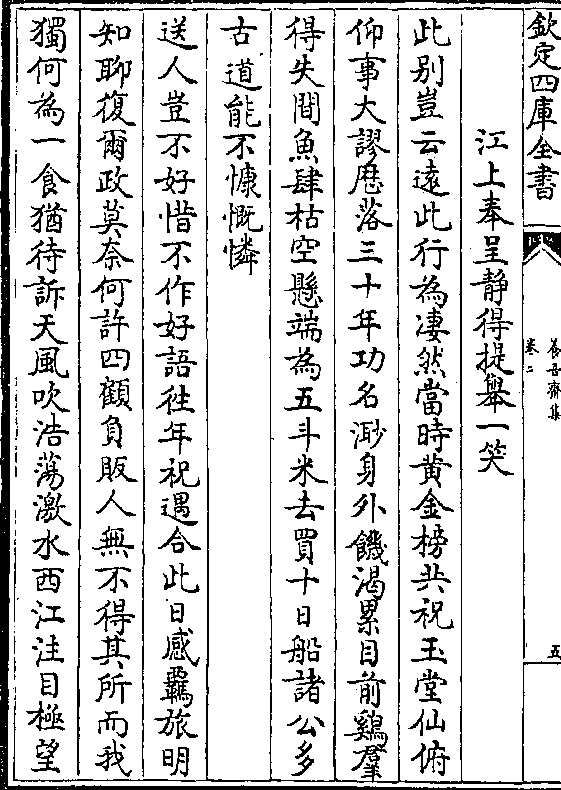 欽定四庫全書
養吾齋集
卷二
五
江上奉呈靜得提舉一笑
此別豈云遠此行為凄然當時黄金榜共祝玉堂仙俯
仰事大謬歴落三十年功名渺身外饑渴累目前鷄羣
得失間魚肆枯空懸端為五斗米去買十日船諸公多
古道能不慷慨憐
送人豈不好惜不作好語徃年祝遇合此日感羈旅明
知聊復爾政莫奈何許四顧負販人無不得其所而我
獨何為一食猶待訴天風吹浩蕩激水西江注目極望